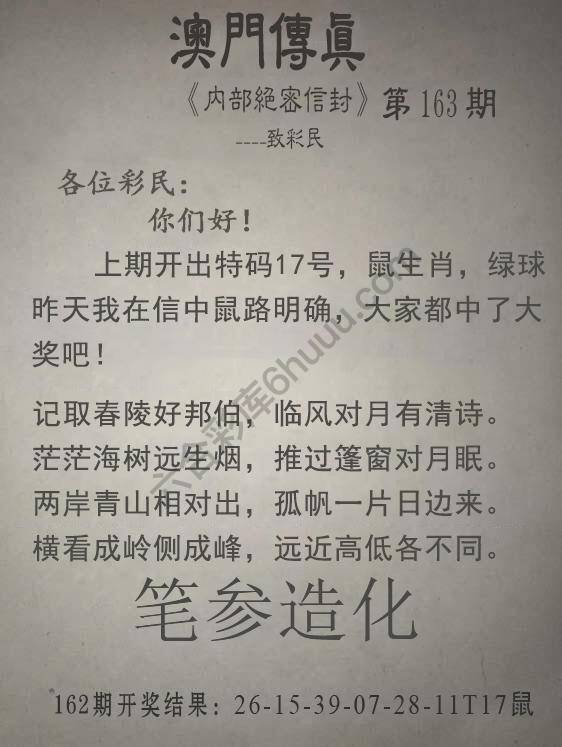 澳門傳真
《内部絕密信封》第163期
----致彩民
各位彩民：
你们好！
上期开出特码17号，鼠生肖，绿球
昨天我在信中鼠路明确，大家都中了大
奖吧！
记取春陵好邦伯，临风对月有清诗。
茫茫海树远生烟，推过篷窗对月眠。
两岸青山相对出，孤帆一片日边来。
横看成岭侧成峰，远近高低各不同。
笔参造化
162期开奖结果：26-15-39-07-28-11T17鼠
六合彩库6huuu.com